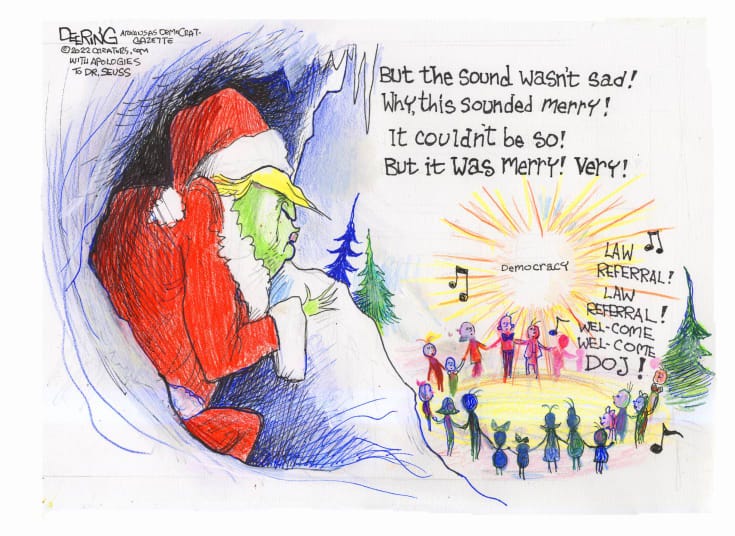 DEERING ARKANSAS DEMOCRAT-
GAZETTE
©2022 CREATORS.COM
WITH APOLOGIES
TO DR. SEUSS
But the sound wasn't sad!
Why, this sounded merry!
It couldn't be so!
But it was merry! Very!
Democracy
LAW
REFERRAL!
LAW
REFERRAL!
WEL-COME
WEL-COME
DOJ!